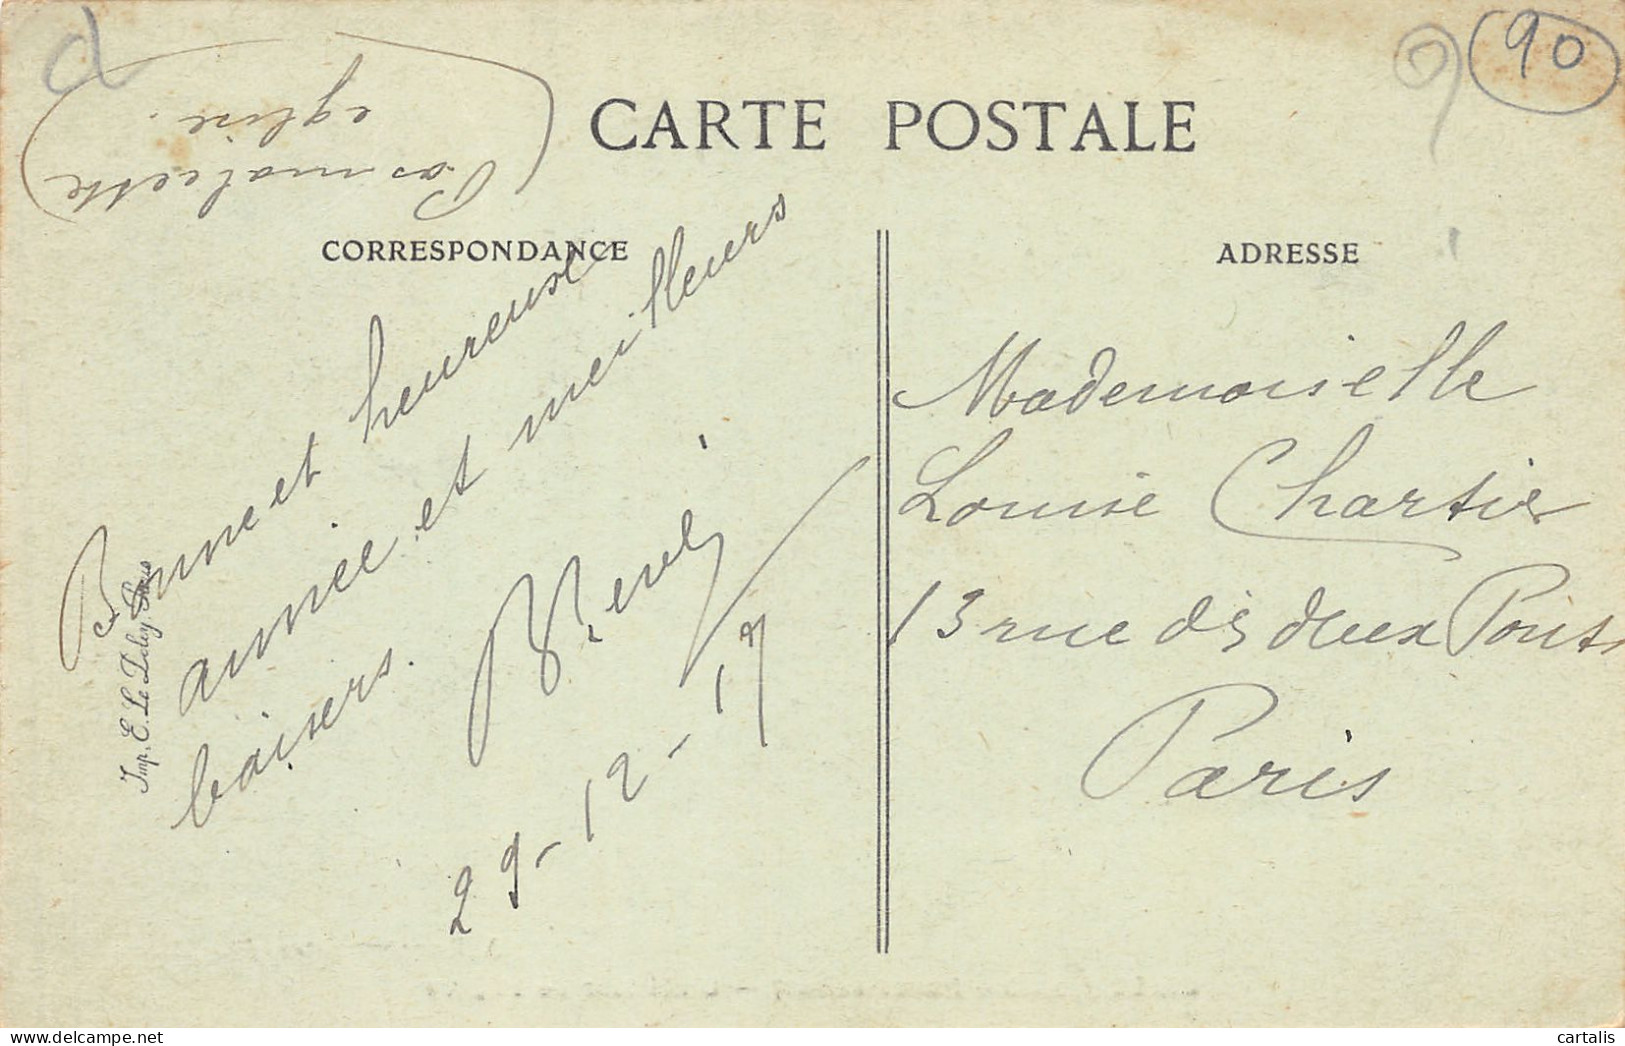 90
CARTE POSTALE
Pas mal cette
eglise.
CORRESPONDANCE
ADRESSE
Bonne et heureuse
année et meilleurs
baisers.
29-12-17
Imp. E. Le Deley, Paris
Mademoiselle
Louise Chartier
13 rue des deux Ponts
Paris
cartalis